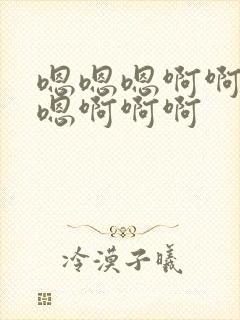 嗯嗯嗯啊啊
嗯啊啊啊
冷漠子曦